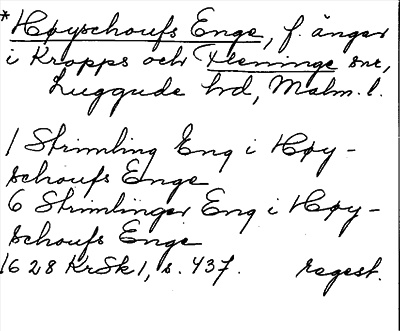 *Høyschoufs Enge, f. ängar
i Kropps och Fleninge snr,
Luggude hd, Malm. l.
1 Strimling Eng i Høy-
schoufs Enge
6 Strimlinger Eng i Høy-
schoufs Enge
1628 KrSk 1, s. 437. regest.